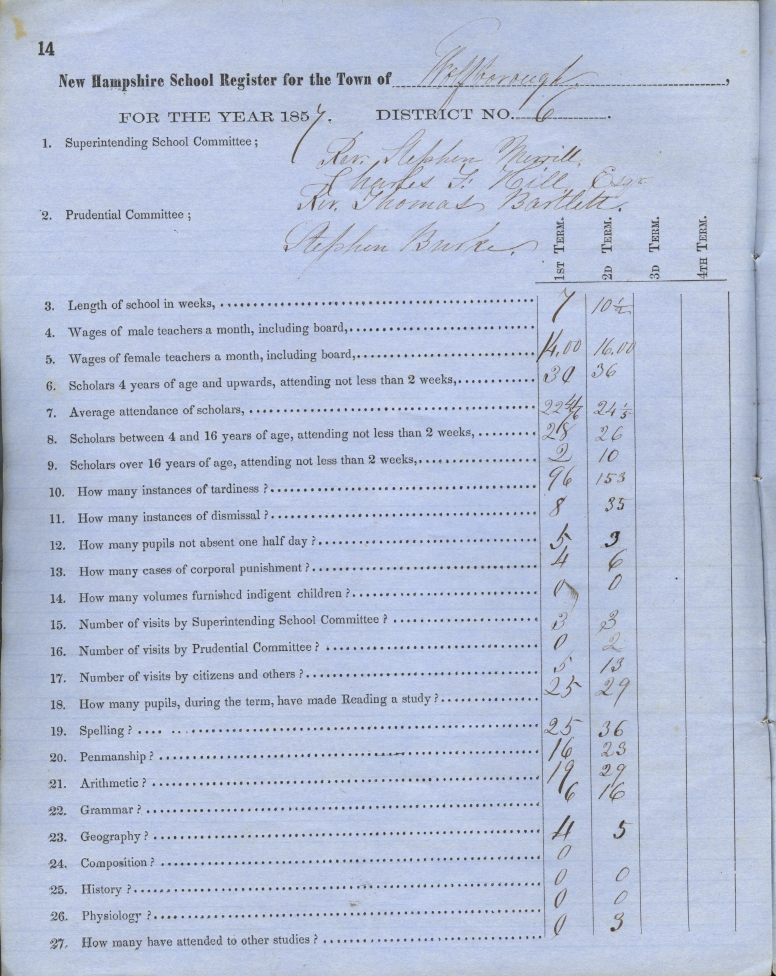 14
New Hampshire School Register for the Town of Wolfborough,
FOR THE YEAR 1857. DISTRICT NO. 6.
1. Superintending School Committee;
Rev. Stephen Merrill,
Charles F. Hill, Esqr
Rev. Thomas Bartlett.
2. Prudential Committee;
Stephen Burke.
1ST TERM. 2D TERM. 3D TERM. 4TH TERM.
3. Length of school in weeks, 7 10½
4. Wages of male teachers a month, including board,
5. Wages of female teachers a month, including board, 14.00 16.00
6. Scholars 4 years of age and upwards, attending not less than 2 weeks, 30 36
7. Average attendance of scholars, 22 4/6 24 1/5
8. Scholars between 4 and 16 years of age, attending not less than 2 weeks, 28 26
9. Scholars over 16 years of age, attending not less than 2 weeks, 2 10
10. How many instances of tardiness? 96 153
11. How many instances of dismissal? 8 35
12. How many pupils not absent one half day? 5 3
13. How many cases of corporal punishment? 4 6
14. How many volumes furnished indigent children? 0 0
15. Number of visits by Superintending School Committee? 3 3
16. Number of visits by Prudential Committee? 0 2
17. Number of visits by citizens and others? 5 13
18. How many pupils, during the term, have made Reading a study? 25 29
19. Spelling? 25 36
20. Penmanship? 16 23
21. Arithmetic? 19 29
22. Grammar? 6 16
23. Geography? 4 5
24. Composition? 0
25. History? 0 0
26. Physiology? 0 0
27. How many have attended to other studies? 0 3